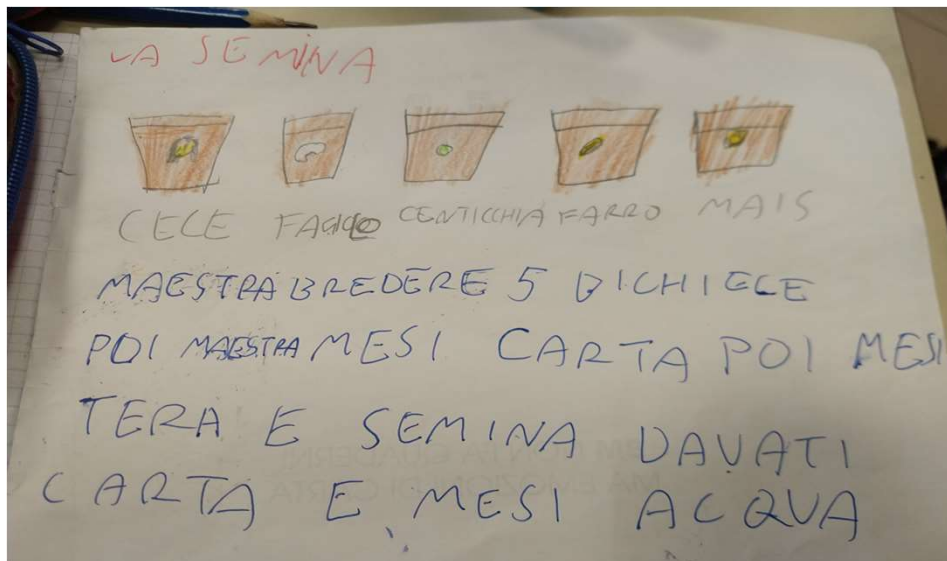 LA SEMINA
CECE FAGIOLO CENTICCHIA FARRO MAIS
MAESTRA BREDERE 5 BICHIECE
POI MAESTRA MESI CARTA POI MESI
TERA E SEMINA DAVATI
CARTA E MESI ACQUA